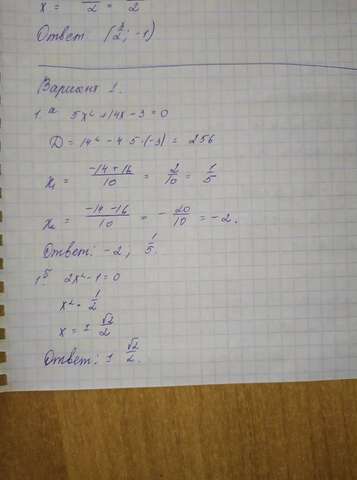 x = — 2 = 2
Ответ (3/2; -1)
Вариант 1.
1. а 5x² + 14x - 3 = 0
D = 14² - 4·5·(-3) = 256
x₁ = (-14+16)/10 = 2/10 = 1/5
x₂ = (-14-16)/10 = - 20/10 = -2.
Ответ: -2; 1/5.
1. б 2x² - 1 = 0
x² = 1/2
x = ± √2/2
Ответ: ± √2/2.